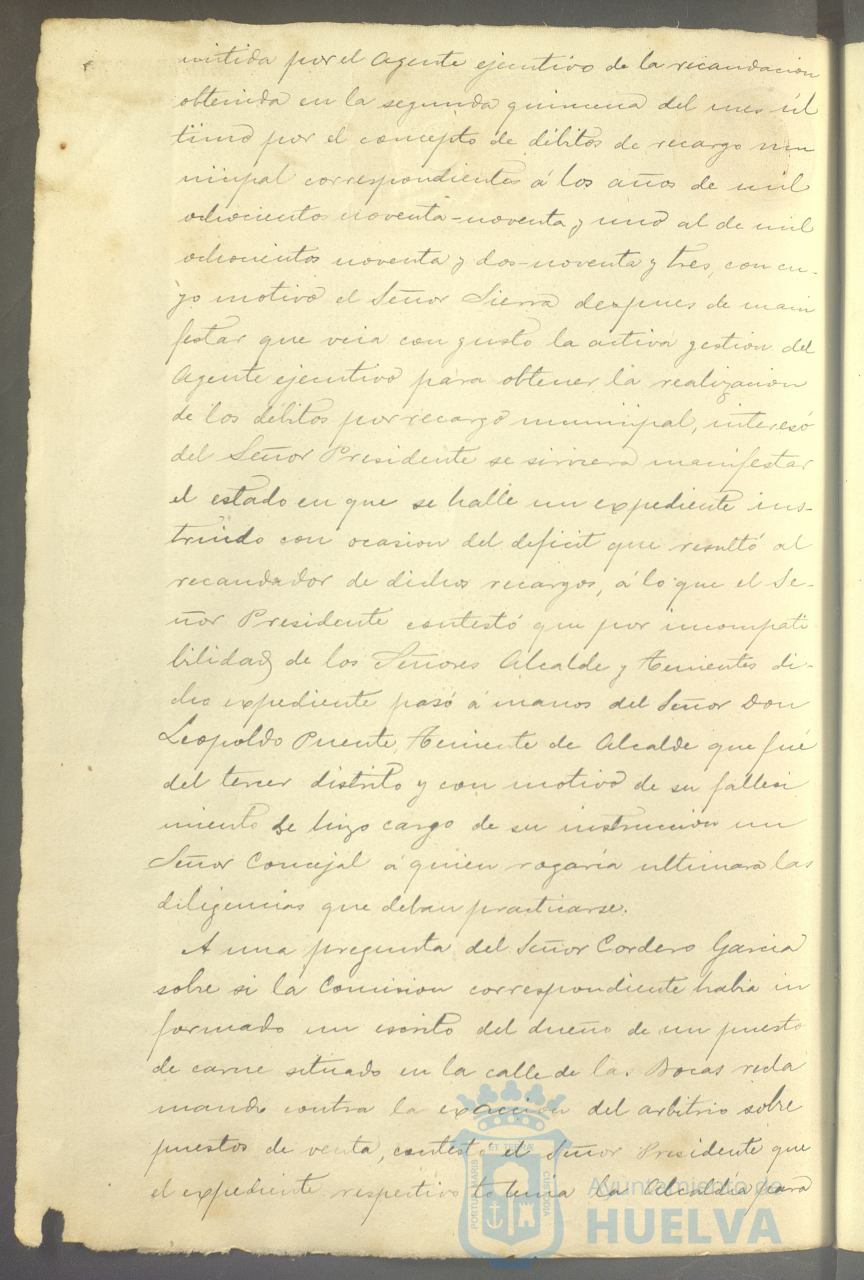 mitida por el Agente ejecutivo de la recaudacion
obtenida en la segunda quincena del mes úl
timo por el concepto de débitos de recargo mu
nicipal correspondientes á los años de mil
ochocientos noventa-noventa y uno al de mil
ochocientos noventa y dos-noventa y tres, con cu-
yo motivo el Señor Sierra despues de mani
festar que veia con gusto la activa gestion del
Agente ejecutivo para obtener la realizacion
de los débitos por recargo municipal, interesó
del Señor Presidente se sirviera manifestar
el estado en que se halle un expediente ins-
truido con ocasion del deficit que resultó al
recaudador de dichos recargos, á lo que el Se-
ñor Presidente contestó que por incompati
bilidad de los Señores Alcalde y Tenientes di-
cho expediente pasó á manos del Señor Don
Leopoldo Puente, Teniente de Alcalde que fué
del tercer distrito y con motivo de su falleci
miento se hizo cargo de su instruccion un
Señor Concejal á quien rogaria ultimara las
diligencias que deban practicarse.
A una pregunta del Señor Cordero Garcia
sobre si la Comision correspondiente habia in
formado un escrito del dueño de un puesto
de carne situado en la calle de las Bocas recla
mando contra la exaccion del arbitrio sobre
puestos de venta, contestó el Señor Presidente que
el expediente respectivo lo tenia la Alcaldía para
PORTUS MARIS ET TERRÆ CUSTODIA
Ayuntamiento de
HUELVA